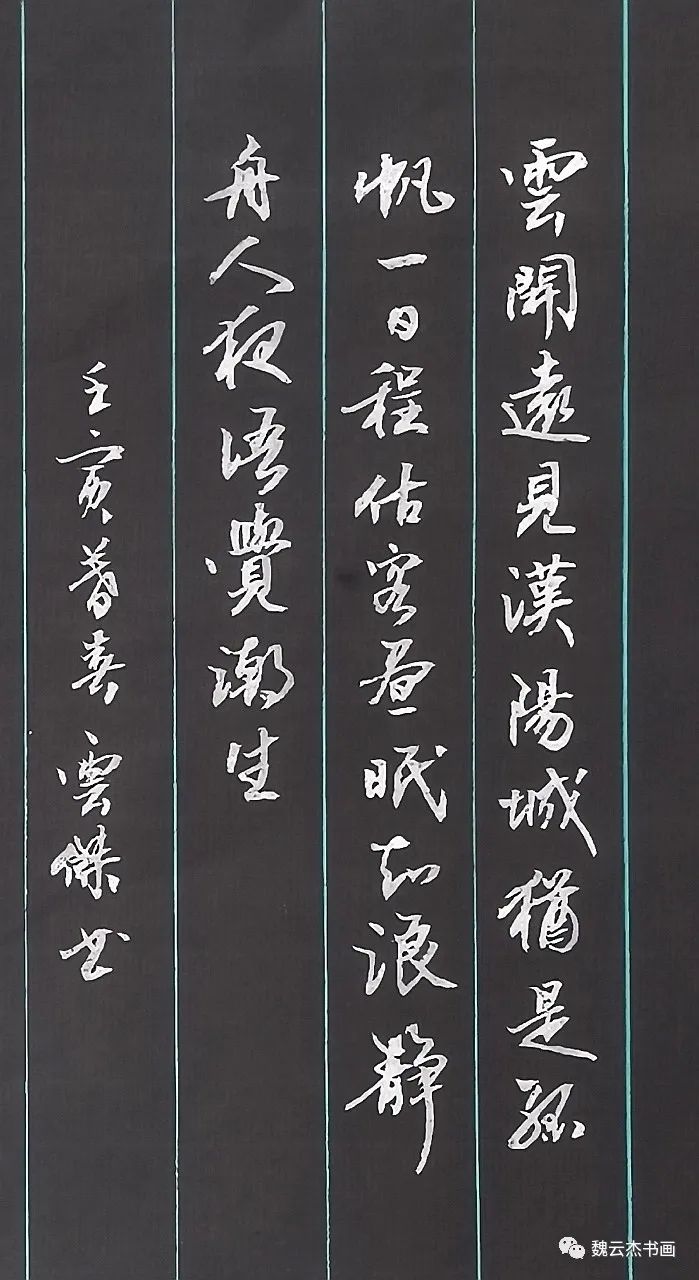 雲開遠見漢陽城猶是孤
帆一日程估客晝眠知浪靜
舟人夜語覺潮生
壬寅暮春雲傑书
魏云杰书画